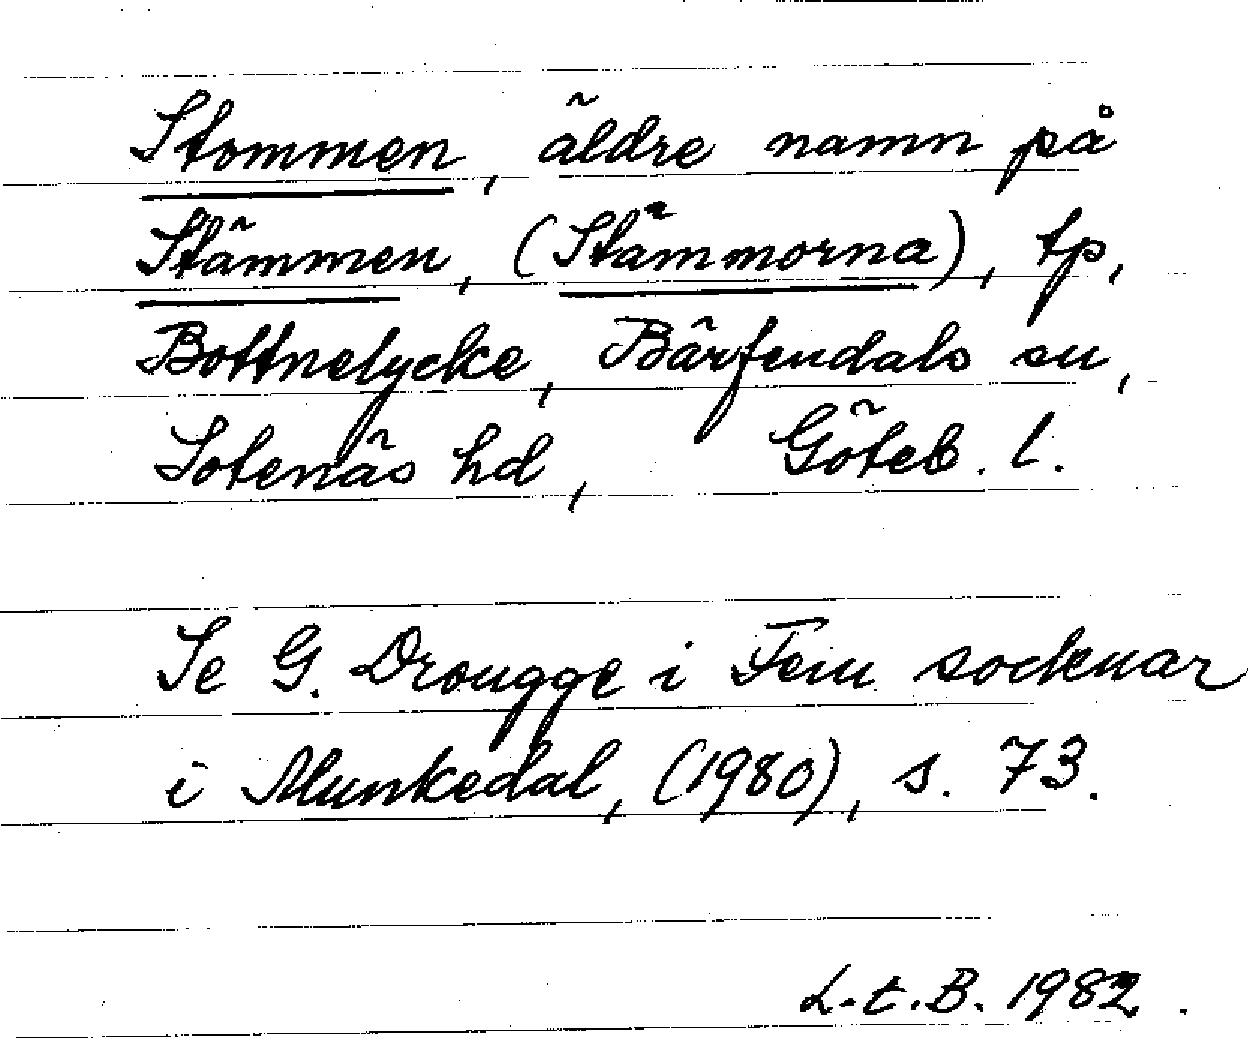 Stommen, äldre namn på
Stämmen, (Stämmorna), tp,
Bottnelycke, Bärfendals sn,
Sotenäs hd, Göteb. l.
Se G. Drougge i Fem socknar
i Munkedal, (1980), s. 73.
L.t.B. 1982.